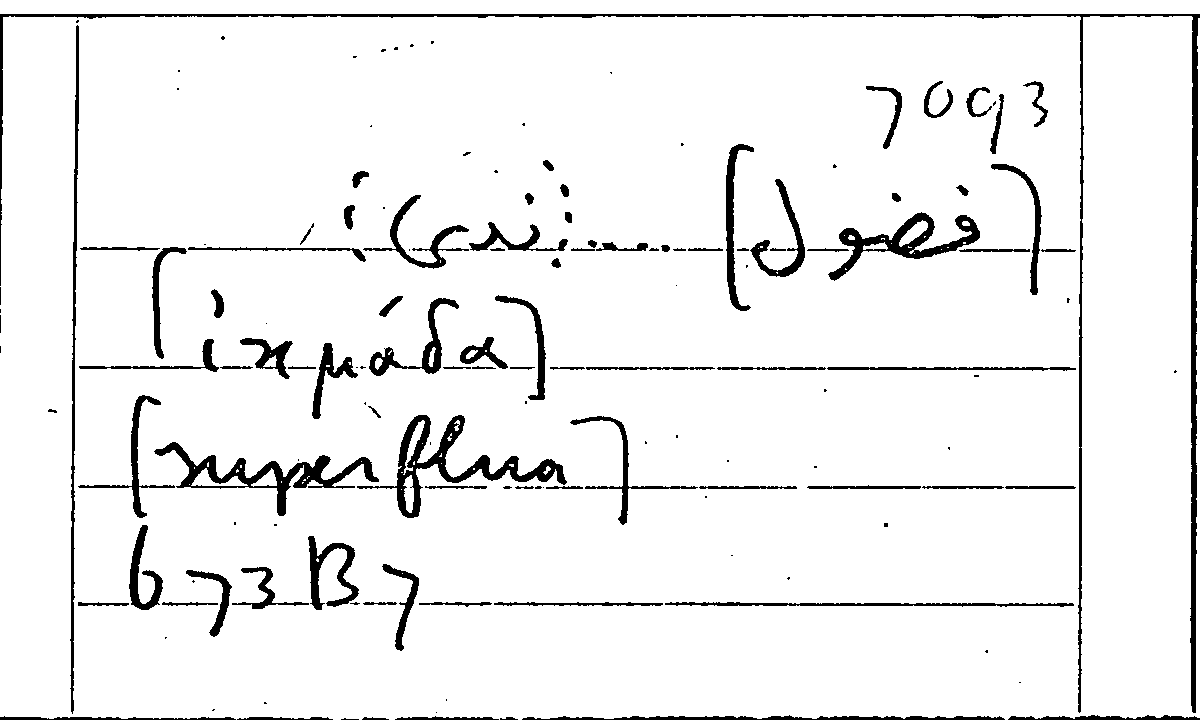 7093
[فضول] ..... :ندى:
[ἰκμάδα]
[superflua]
673B7